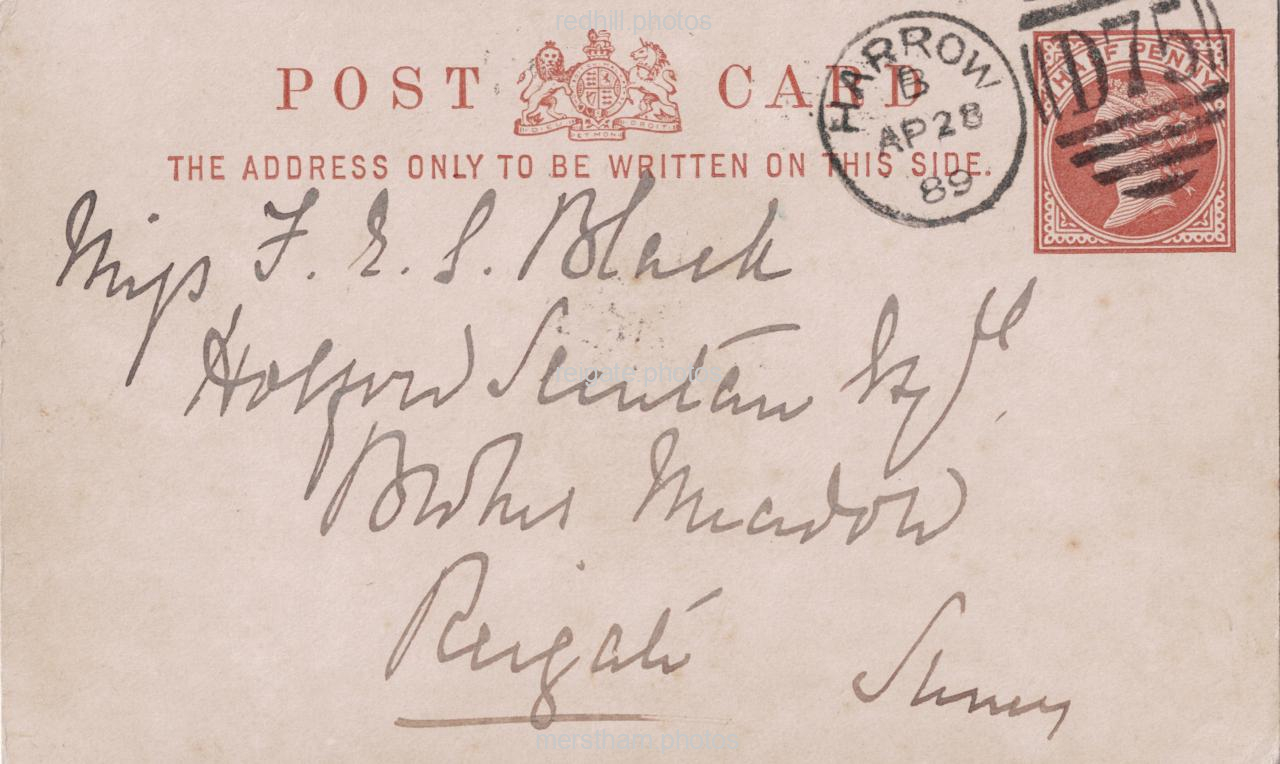 redhill photos
POST CARD
DIEU ET MON DROIT
THE ADDRESS ONLY TO BE WRITTEN ON THIS SIDE.
HARROW
B
AP 28
89
D75
HALF PENNY
Miss F. E. S. Black
Holford Esqre.
reigate photos
Meadow
Reigate
Surrey
merstham photos